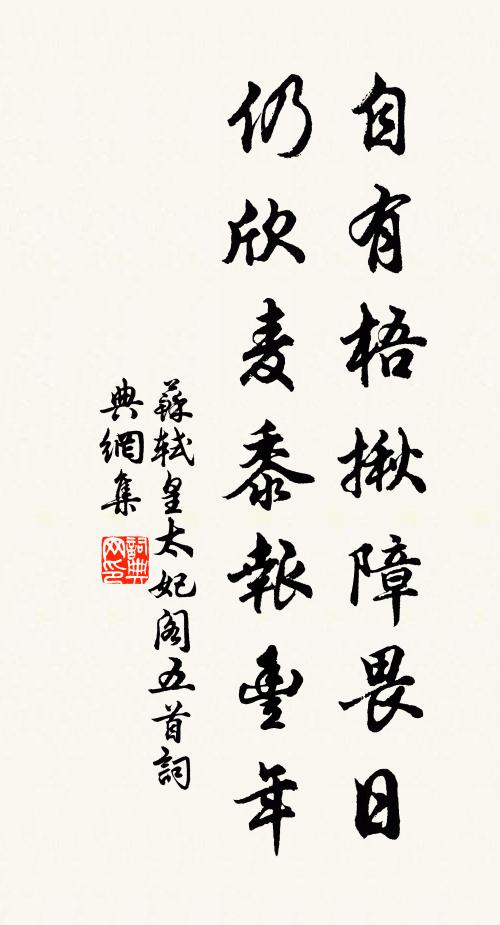 自有梧楸障畏日
仍欣麦黍報豐年
蘇軾皇太妃阁五首詞
典網集
詞典网印